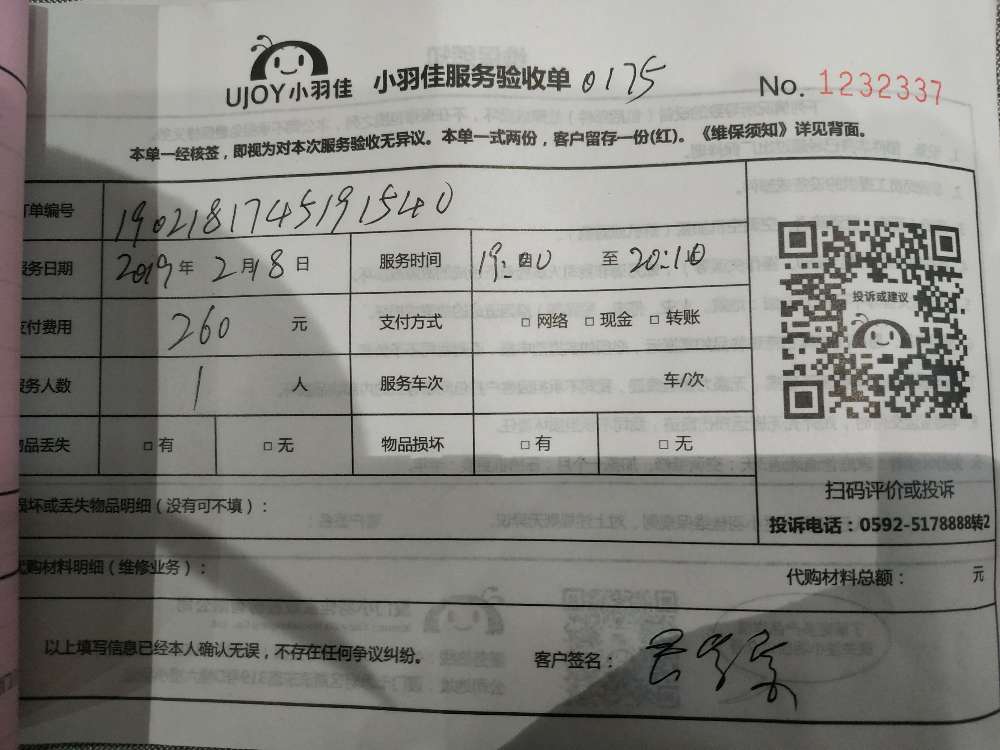 UJOY小羽佳 小羽佳服务验收单 0175 No. 1232337
本单一经核签，即视为对本次服务验收无异议。本单一式两份，客户留存一份(红)。《维保须知》详见背面。
订单编号 1902181745191540
服务日期 2019年2月18日 服务时间 19:00 至 20:10
支付费用 260 元 支付方式 □ 网络 □ 现金 □ 转账
服务人数 1 人 服务车次 车/次
物品丢失 □ 有 □ 无 物品损坏 □ 有 □ 无
投诉或建议
扫码评价或投诉
投诉电话：0592-5178888转2
损坏或丢失物品明细（没有可不填）：
代购材料明细（维修业务）： 代购材料总额： 元
以上填写信息已经本人确认无误，不存在任何争议纠纷。 客户签名：